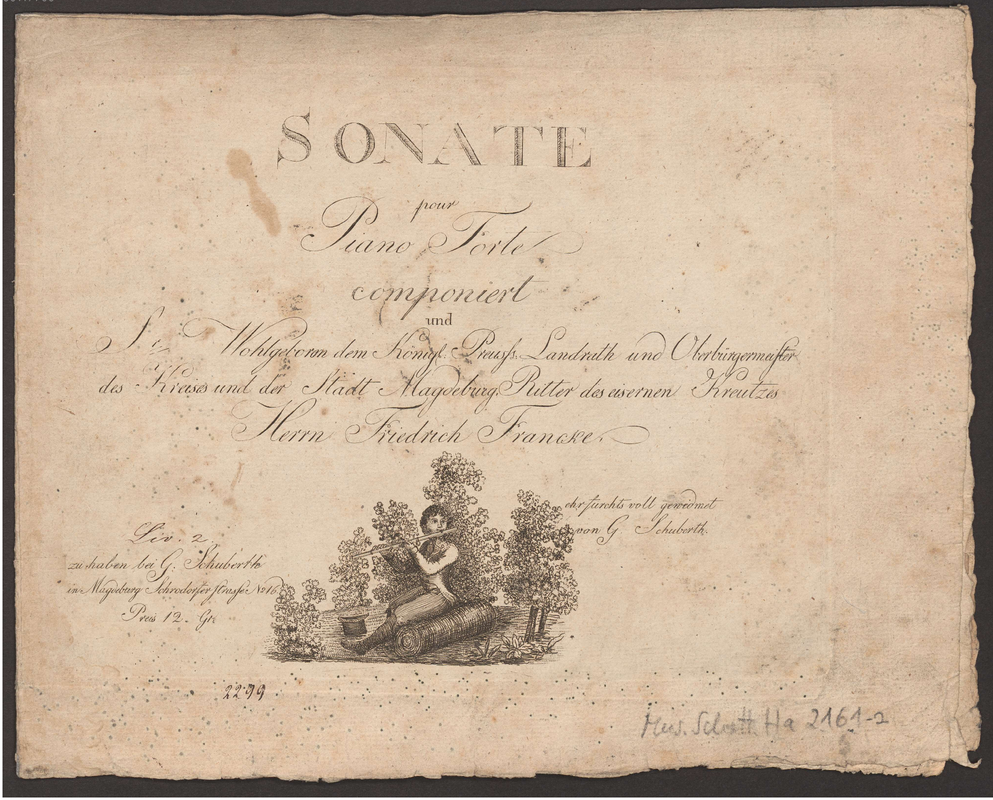 SONATE
pour
Piano Forte
componiert
und
Sr. Wohlgeboren dem Königl. Preuss. Landrath und Oberbürgermeister
des Kreises und der Stadt Magdeburg, Ritter des eisernen Kreutzes
Herrn Friedrich Francke
ehrfurchts voll gewidmet
von G. Schuberth.
Liv. 2.
zu haben bei G. Schuberth
in Magdeburg Schrodorfer strasse No 16
Preis 12. Gr.
2299
Mus. Schott Ha 2161-2